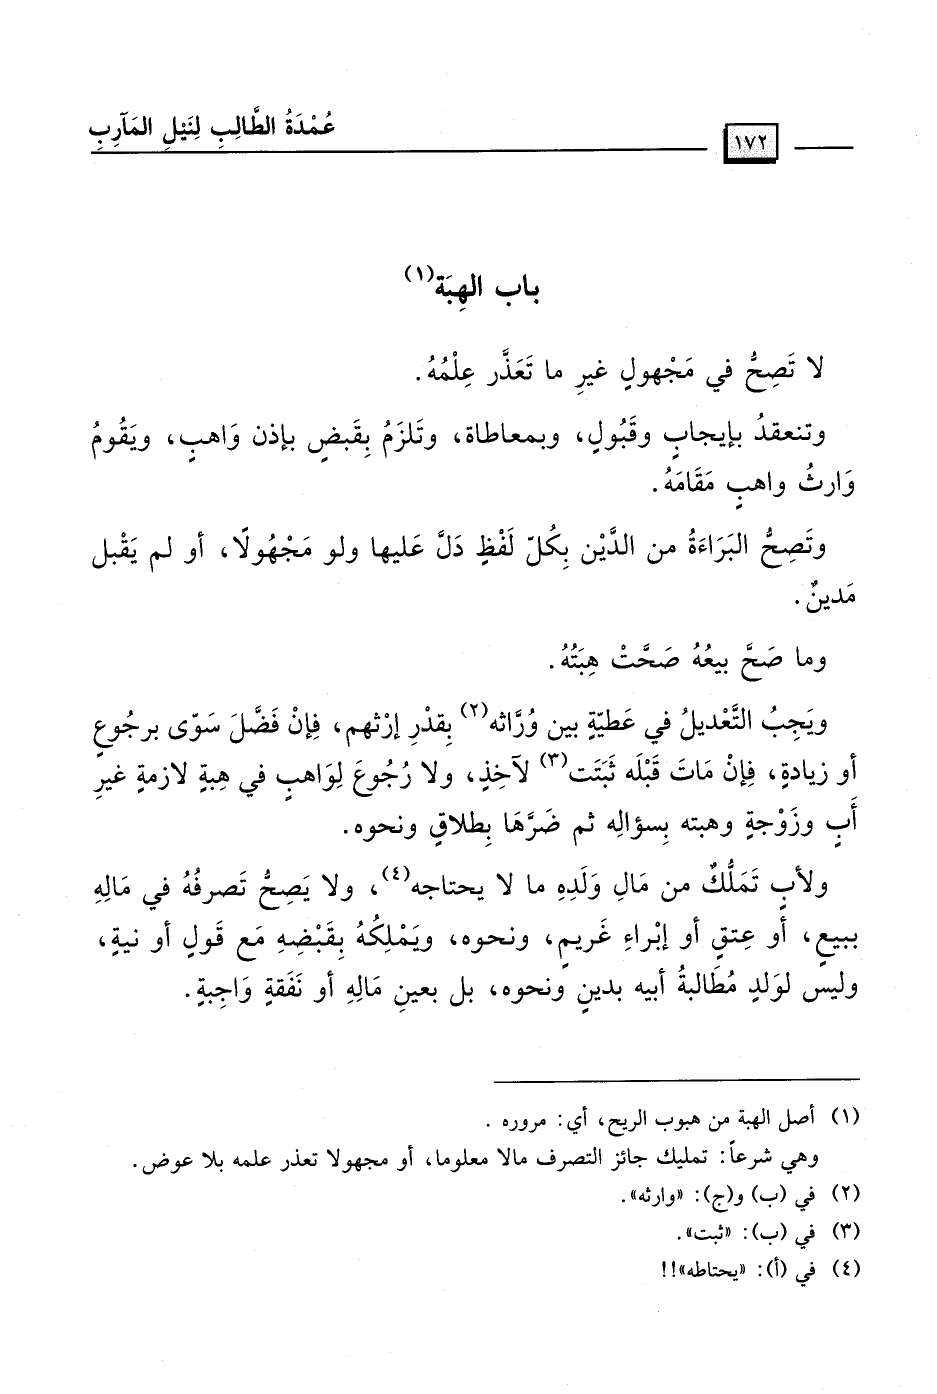 عُمْدَةُ الطَّالِبِ لِنَيْلِ المَآرِبِ
١٧٢
باب الهِبَة(١)
لا تَصِحُّ في مَجْهولٍ غيرِ ما تَعَذَّر عِلْمُهُ.
وتنعقدُ بإيجابٍ وقَبُولٍ، وبمعاطاة، وتَلزَمُ بِقَبضٍ بإذن وَاهبٍ، ويَقُومُ
وَارثُ واهبٍ مَقَامَهُ.
وتَصِحُّ البَرَاءَةُ من الدَّيْن بِكُلّ لَفْظٍ دَلَّ عَليها ولو مَجْهُولًا، أو لم يَقْبل
مَدينٌ.
وما صَحَّ بيعُهُ صَحَّتْ هِبَتُهُ.
ويَجِبُ التَّعْديلُ في عَطيّةٍ بين وُرَّاثه(٢) بِقدْرِ إرْثهم، فِإنْ فَضَّلَ سَوّى برجُوعٍ
أو زيادةٍ، فِإنْ مَاتَ قَبْلَه ثَبَتَت(٣) لآخِذٍ، ولا رُجُوعَ لِوَاهبٍ في هِبةٍ لازمةٍ غيرِ
أَبٍ وزَوْجةٍ وهبته بِسؤالِه ثم ضَرَّهَا بِطلاقٍ ونحوه.
ولأبٍ تَمَلُّكٌ من مَالِ وَلَدِهِ ما لا يحتاجه(٤)، ولا يَصِحُّ تَصرفُهُ في مَالِهِ
ببيعٍ، أو عِتقٍ أو إبْراءِ غَريمٍ، ونحوه، ويَمْلِكُهُ بِقَبْضِهِ مَع قَولٍ أو نيةٍ،
وليس لوَلدٍ مُطَالبةُ أبيه بدينٍ ونحوه، بل بعينِ مَالِهِ أو نَفَقةٍ وَاجبةٍ.
(١) أصل الهبة من هبوب الريح، أي: مروره .
وهي شرعاً: تمليك جائز التصرف مالا معلوما، أو مجهولا تعذر علمه بلا عوض.
(٢) في (ب) و(ج): «وارثه».
(٣) في (ب): «ثبت».
(٤) في (أ): «يحتاطه»!!